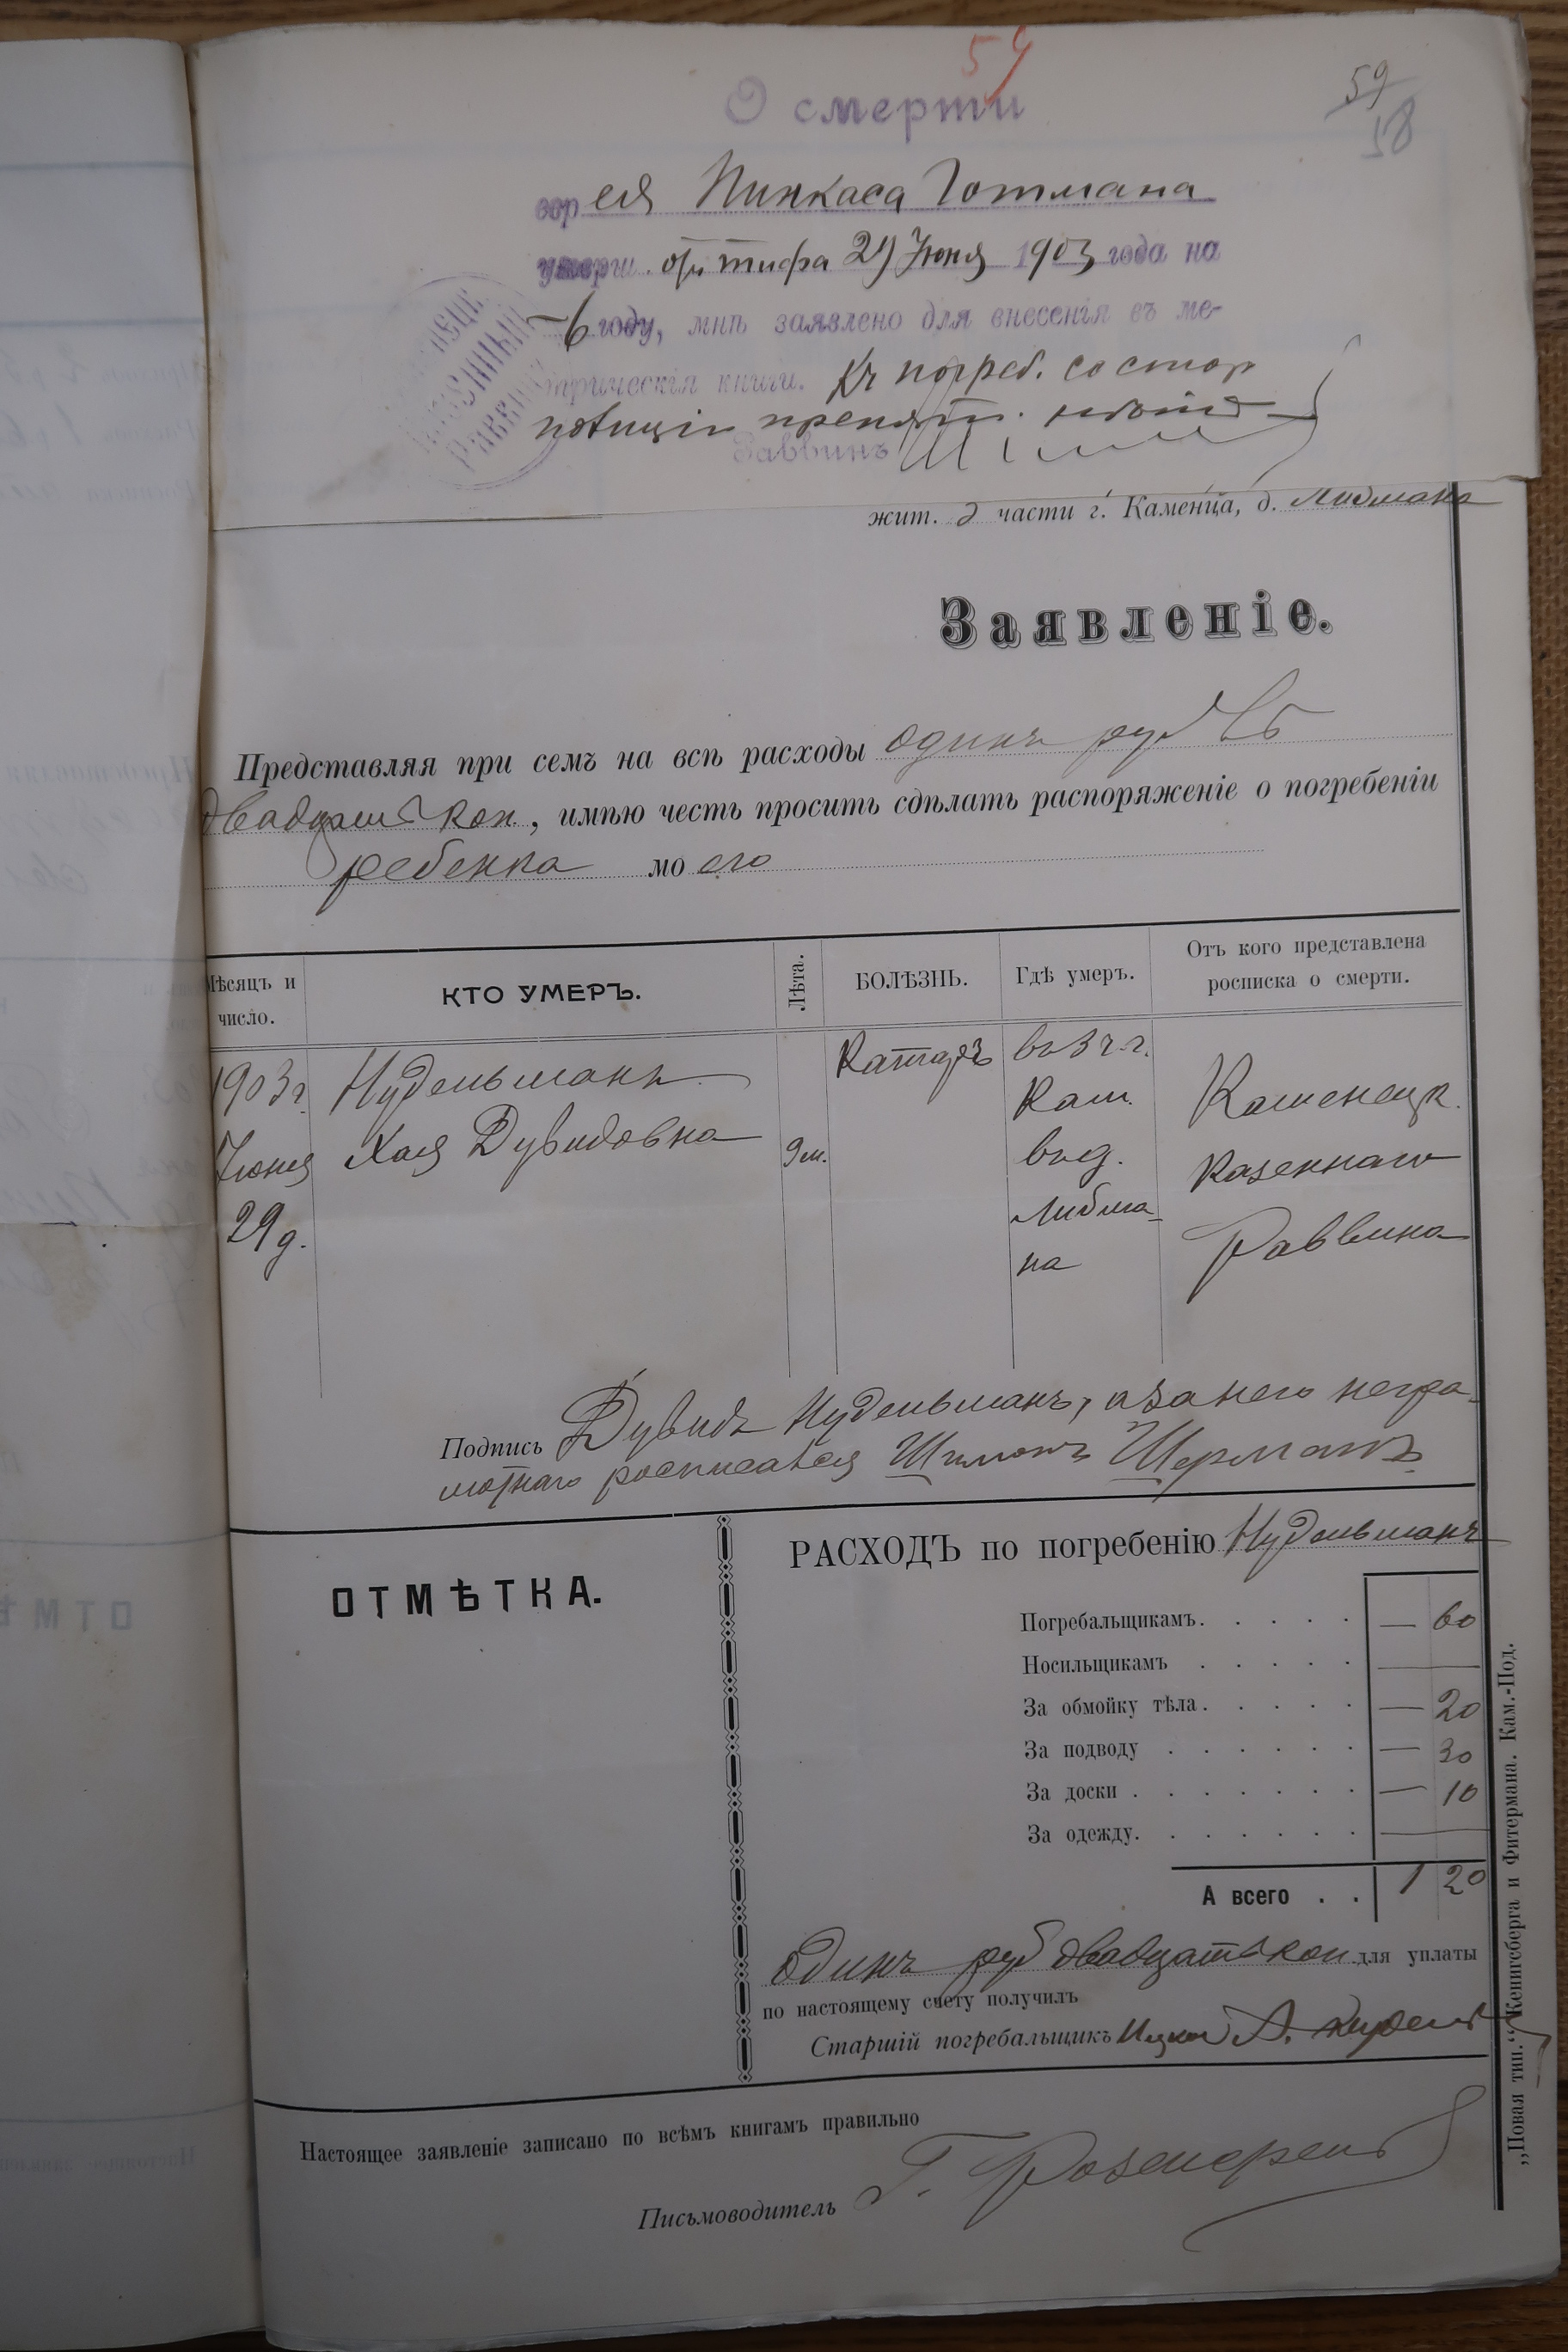 59
59
58
О смерти
евр ея Пинкаса Готмана
умерш. отъ тифа 29 Іюня 1903 года на
6 году, мнѣ заявлено для внесенія въ ме-
трическія книги. Къ погреб. со стор
полиціи препят. нѣтъ
Раввинъ
жит. 2 части г. Каменца, д. Либмана
Заявленіе.
Представляя при семъ на всѣ расходы одинъ руб
двадцать коп., имѣю честь просить сдѣлать распоряженіе о погребеніи
ребенка моего
Мѣсяцъ и число. КТО УМЕРЪ. Лѣта. БОЛѢЗНЬ. Гдѣ умеръ. Отъ кого представлена росписка о смерти.
1903 г. Нудельманъ Катаръ въ 3 ч. г.
Іюня Хая Дувидовна 9 м. Кам. Каменецк.
29 д. въ д. Казеннаго
Либма- Раввина
на
Подпись Дувидъ Нудельманъ, а за него негра-
мотнаго росписался Шимонъ Шерманъ
ОТМѢТКА.
РАСХОДЪ по погребенію Нудельманъ
Погребальщикамъ. . . . . — 60
Носильщикамъ . . . . . —
За обмойку тѣла. . . . . — 20
За подводу . . . . . . — 30
За доски . . . . . . . — 10
За одежду. . . . . . . —
А всего . . 1 20
Одинъ руб двадцать коп для уплаты
по настоящему счету получилъ
Старшій погребальщикъ Ицко А.
Настоящее заявленіе записано по всѣмъ книгамъ правильно
Письмоводитель Г.
„Новая тип.“ Кенигсберга и Фитермана. Кам.-Под.